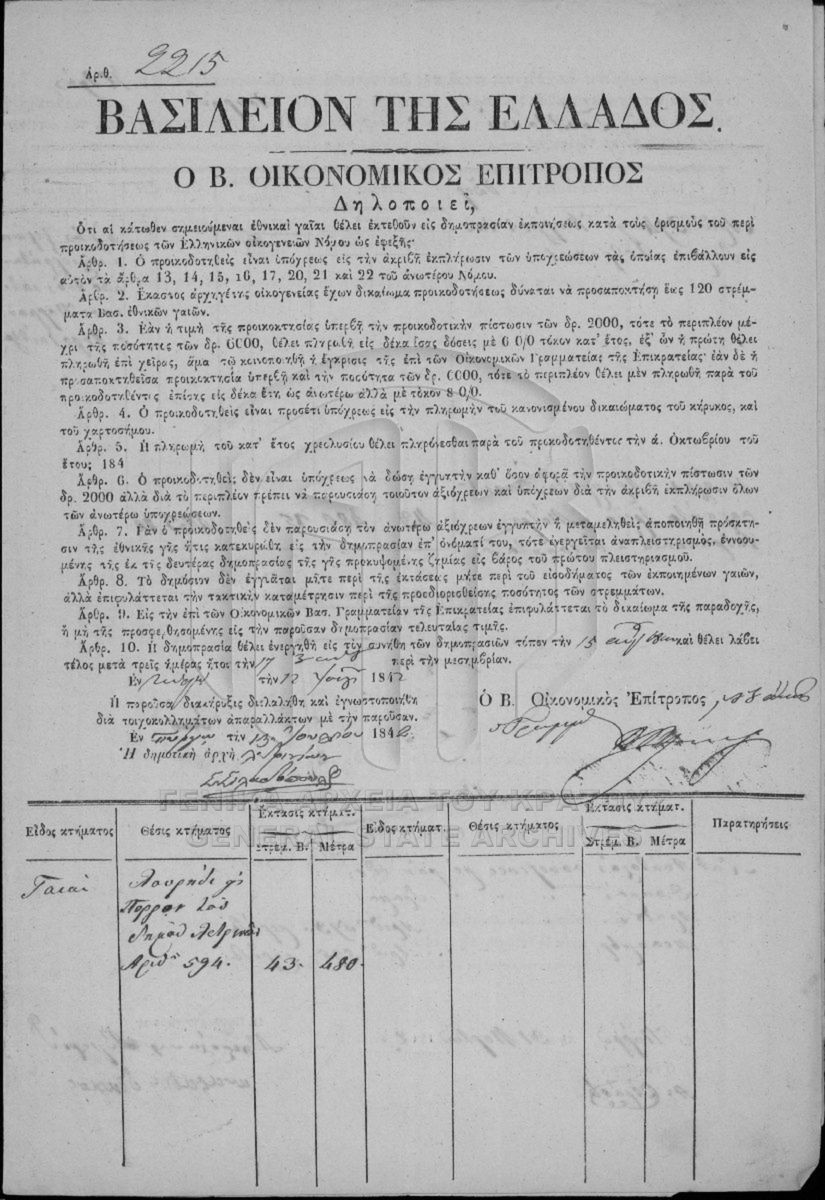 Ἀρθ. 2215
ΒΑΣΙΛΕΙΟΝ ΤΗΣ ΕΛΛΑΔΟΣ.
Ο Β. ΟΙΚΟΝΟΜΙΚΟΣ ΕΠΙΤΡΟΠΟΣ
Δηλοποιεῖ,
Ὅτι αἱ κάτωθεν σημειούμεναι ἐθνικαὶ γαῖαι θέλει ἐκτεθοῦν εἰς δημοπρασίαν ἐκποιήσεως κατὰ τοὺς ὁρισμοὺς τοῦ περὶ
προικοδοτήσεως τῶν Ἑλληνικῶν οἰκογενειῶν Νόμου ὡς ἐφεξῆς·
Ἄρθρ. 1. Ὁ προικοδοτηθεὶς εἶναι ὑπόχρεως εἰς τὴν ἀκριβῆ ἐκπλήρωσιν τῶν ὑποχρεώσεων τὰς ὁποίας ἐπιβάλλουν εἰς
αὐτὸν τὰ ἄρθρα 13, 14, 15, 16, 17, 20, 21 καὶ 22 τοῦ ἀνωτέρου Νόμου.
Ἄρθρ. 2. Ἕκαστος ἀρχηγέτης οἰκογενείας ἔχων δικαίωμα προικοδοτήσεως δύναται νὰ προσαποκτήσῃ ἕως 120 στρέμ-
ματα Βασ. ἐθνικῶν γαιῶν.
Ἄρθρ. 3. Ἐὰν ἡ τιμὴ τῆς προικοκτησίας ὑπερβῇ τὴν προικοδοτικὴν πίστωσιν τῶν δρ. 2000, τότε τὸ περιπλέον μέ-
χρι τῆς ποσότητος τῶν δρ. 6000, θέλει πληρωθῆ εἰς δέκα ἴσας δόσεις μὲ 6 0/0 τόκον κατ' ἔτος, ἐξ' ὧν ἡ πρώτη θέλει
πληρωθῆ ἐπὶ χεῖρας, ἅμα τῷ κοινοποιηθῇ ἡ ἔγκρισις τῆς ἐπὶ τῶν Οἰκονομικῶν Γραμματείας τῆς Ἐπικρατείας· ἐὰν δὲ ἡ
προσαποκτηθεῖσα προικοκτησία ὑπερβῇ καὶ τὴν ποσότητα τῶν δρ. 6000, τότε τὸ περιπλέον θέλει μὲν πληρωθῆ παρὰ τοῦ
προικοδοτηθέντος ἐπίσης εἰς δέκα ἔτη ὡς ἀνωτέρω ἀλλὰ μὲ τόκον 8 0/0.
Ἄρθρ. 4. Ὁ προικοδοτηθεὶς εἶναι προσέτι ὑπόχρεως εἰς τὴν πληρωμὴν τοῦ κανονισμένου δικαιώματος τοῦ κήρυκος, καὶ
τοῦ χαρτοσήμου.
Ἄρθρ. 5. Ἡ πληρωμὴ τοῦ κατ' ἔτος χρεολυσίου θέλει πληρόνεσθαι παρὰ τοῦ προκοδοτηθέντος τὴν ά. Ὀκτωβρίου τοῦ
ἔτους 184
Ἄρθρ. 6. Ὁ προικοδοτηθεὶς δὲν εἶναι ὑπόχρεως νὰ δώσῃ ἐγγυητὴν καθ' ὅσον ἀφορᾷ τὴν προικοδοτικὴν πίστωσιν τῶν
δρ. 2000 ἀλλὰ διὰ τὸ περιπλέον πρέπει νὰ παρουσιάσῃ τοιοῦτον ἀξιόχρεων καὶ ὑπόχρεων διὰ τὴν ἀκριβῆ ἐκπλήρωσιν ὅλων
τῶν ἀνωτέρω ὑποχρεώσεων.
Ἄρθρ. 7. Ἐὰν ὁ προικοδοτηθεὶς δὲν παρουσιάσῃ τὸν ἀνωτέρω ἀξιόχρεων ἐγγυητὴν ἢ μεταμεληθεὶς ἀποποιηθῇ πρόσκτη-
σιν τῆς ἐθνικῆς γῆς ἥτις κατεκυρώθη εἰς τὴν δημοπρασίαν ἐπ' ὀνόματί του, τότε ἐνεργεῖται ἀναπλειστηριασμὸς, ἐννοου-
μένης τῆς ἐκ τῆς δευτέρας δημοπρασίας τῆς γῆς προκυψομένης ζημίας εἰς βάρος τοῦ πρώτου πλειστηριασμοῦ.
Ἄρθρ. 8. Τὸ δημόσιον δὲν ἐγγυᾶται μήτε περὶ τῆς ἐκτάσεως μήτε περὶ τοῦ εἰσοδήματος τῶν ἐκποιημένων γαιῶν,
ἀλλὰ ἐπιφυλάττεται τὴν τακτικὴν καταμέτρησιν περὶ τῆς προσδιορισθείσης ποσότητος τῶν στρεμμάτων.
Ἄρθρ. 9. Εἰς τὴν ἐπὶ τῶν Οἰκονομικῶν Βασ. Γραμματείαν τῆς Ἐπικρατείας ἐπιφυλάττεται τὸ δικαίωμα τῆς παραδοχῆς,
ἢ μὴ τῆς προσφερθησομένης εἰς τὴν παροῦσαν δημοπρασίαν τελευταίας τιμῆς.
Ἄρθρ. 10. Ἡ δημοπρασία θέλει ἐνεργηθῆ εἰς τὸν συνήθη τῶν δημοπρασιῶν τόπον τὴν 15 καὶ θέλει λάβει
τέλος μετὰ τρεῖς ἡμέρας ἤτοι τὴν 17 περὶ τὴν μεσημβρίαν.
Ἐν τὴν 12 184
Ἡ παροῦσα διακήρυξις διελαλήθη καὶ ἐγνωστοποιήθη
διὰ τοιχοκολλημάτων ἀπαραλλάκτων μὲ τὴν παροῦσαν.
Ἐν τὴν 13 184
Ἡ δημοτικὴ ἀρχὴ
Ὁ Β. Οἰκονομικὸς Ἐπίτροπος
ΓΕΝΙΚΑ ΑΡΧΕΙΑ ΤΟΥ ΚΡΑΤΟΥΣ
GENERAL STATE ARCHIVES
Εἶδος κτήματος Θέσις κτήματος Ἔκτασις κτήματ. Εἶδος κτήματ. Θέσις κτήματος Ἔκτασις κτήματ. Παρατηρήσεις
Στρέμ. Β. Μέτρα Στρέμ. Β. Μέτρα
Γαῖαι
Πύργον τοῦ
Δήμου Λετρίνων
Ἀριθ. 594. 43. 480.